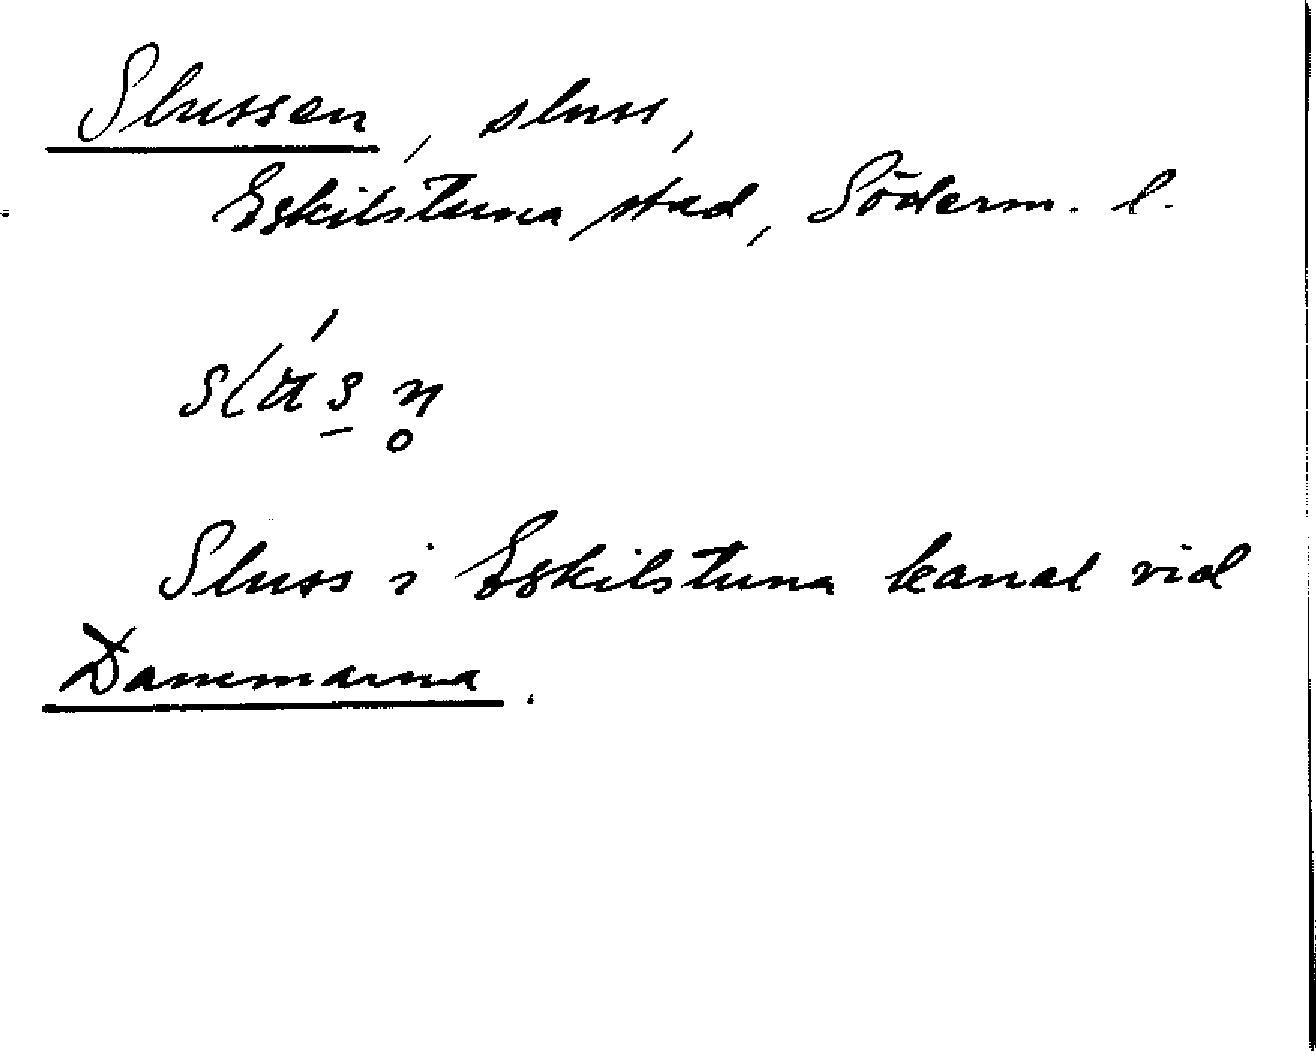 Slussen, sluss,
Eskilstuna stad, Söderm. l.
Sluss i Eskilstuna kanal vid
Dammarna.